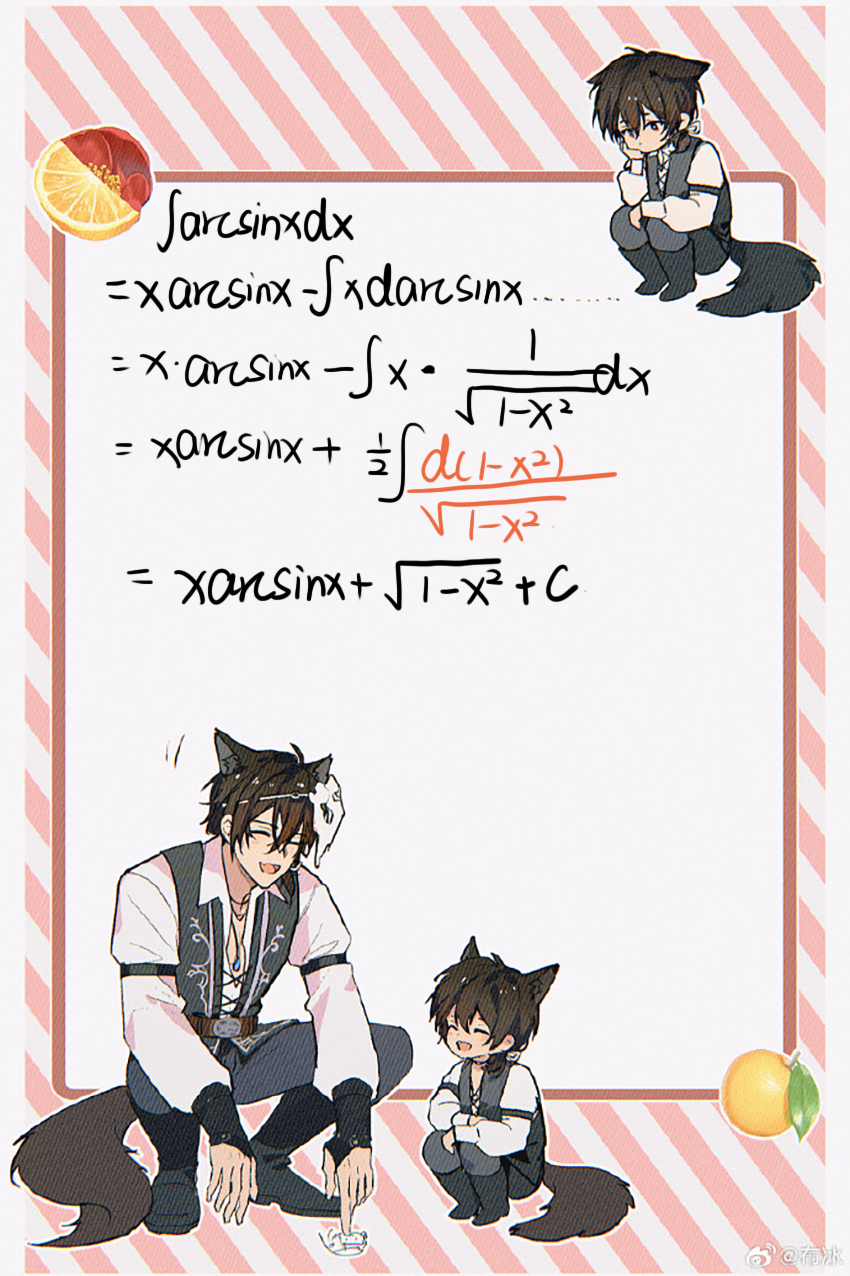 ∫arcsinxdx
=xarcsinx-∫xdarcsinx........
=x·arcsinx-∫x·1/√(1-x²)dx
=xarcsinx+1/2∫d(1-x²)/√(1-x²)
=xarcsinx+√(1-x²)+C
@布冰